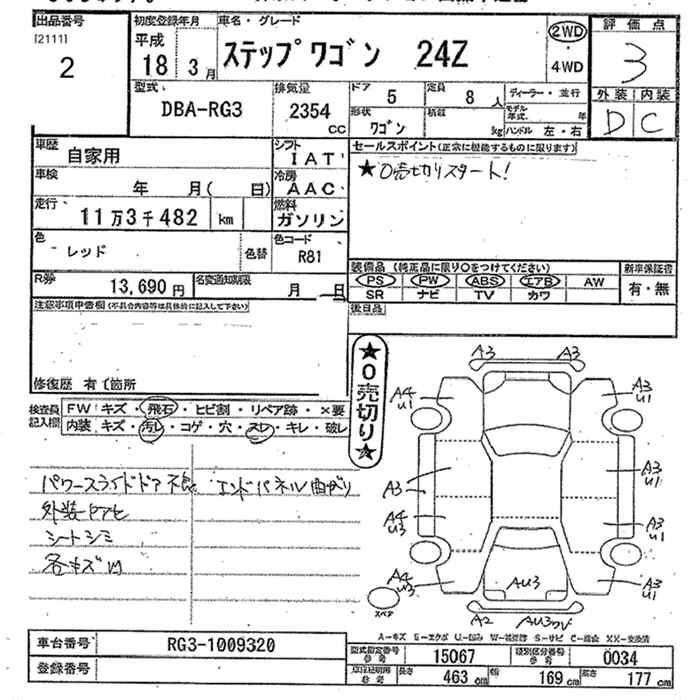 出品番号
[2111]
2
初度登録年月
平成
18 3 月
車名・グレード
ステップワゴン 24Z
2WD
4WD
評価点
3
外装 内装
D C
型式
DBA-RG3
排気量
2354
CC
ドア
5
定員
8 人
形状
ワゴン
積載
kg
ディーラー・並行
モデル年式 年
ハンドル 左・右
車歴
自家用
シフト
IAT
車検
年 月( 日)
冷房
AAC
走行
11万3千482 km
燃料
ガソリン
色
レッド
色替
色コード
R81
R券
13,690 円
名変通知期限
月 日
セールスポイント(正常に機能するものに限ります)
★0売切りスタート!
装備品 (純正品に限り○をつけてください)
PS PW ABS エアB AW
SR ナビ TV カワ
新車保証書
有・無
後日品
注意事項申告欄(不具合内容等は具体的に記入して下さい)
修復歴 有〔箇所
検査員記入欄
FW キズ・飛石・ヒビ割・リペア跡・×要
内装 キズ・汚レ・コゲ・穴・スレ・キレ・破レ
★0売切り★
パワースライドドア不良 エンドパネル曲がり
外装
シートシミ
各キズ凹
A3 A3
A4 U1
A3 U1
A3
A3 U1
A4 U3
A3 U1
A4 U3
A3 U1
AU3
スペア
A2
A-キズ E-エクボ U-凹み W-補修跡 S-サビ C-腐食 XX-交換済
車台番号
RG3-1009320
登録番号
型式指定番号
参考
15067
類別区分番号
参考
0034
参考
長さ
463 cm
幅
169 cm
高さ
177 cm